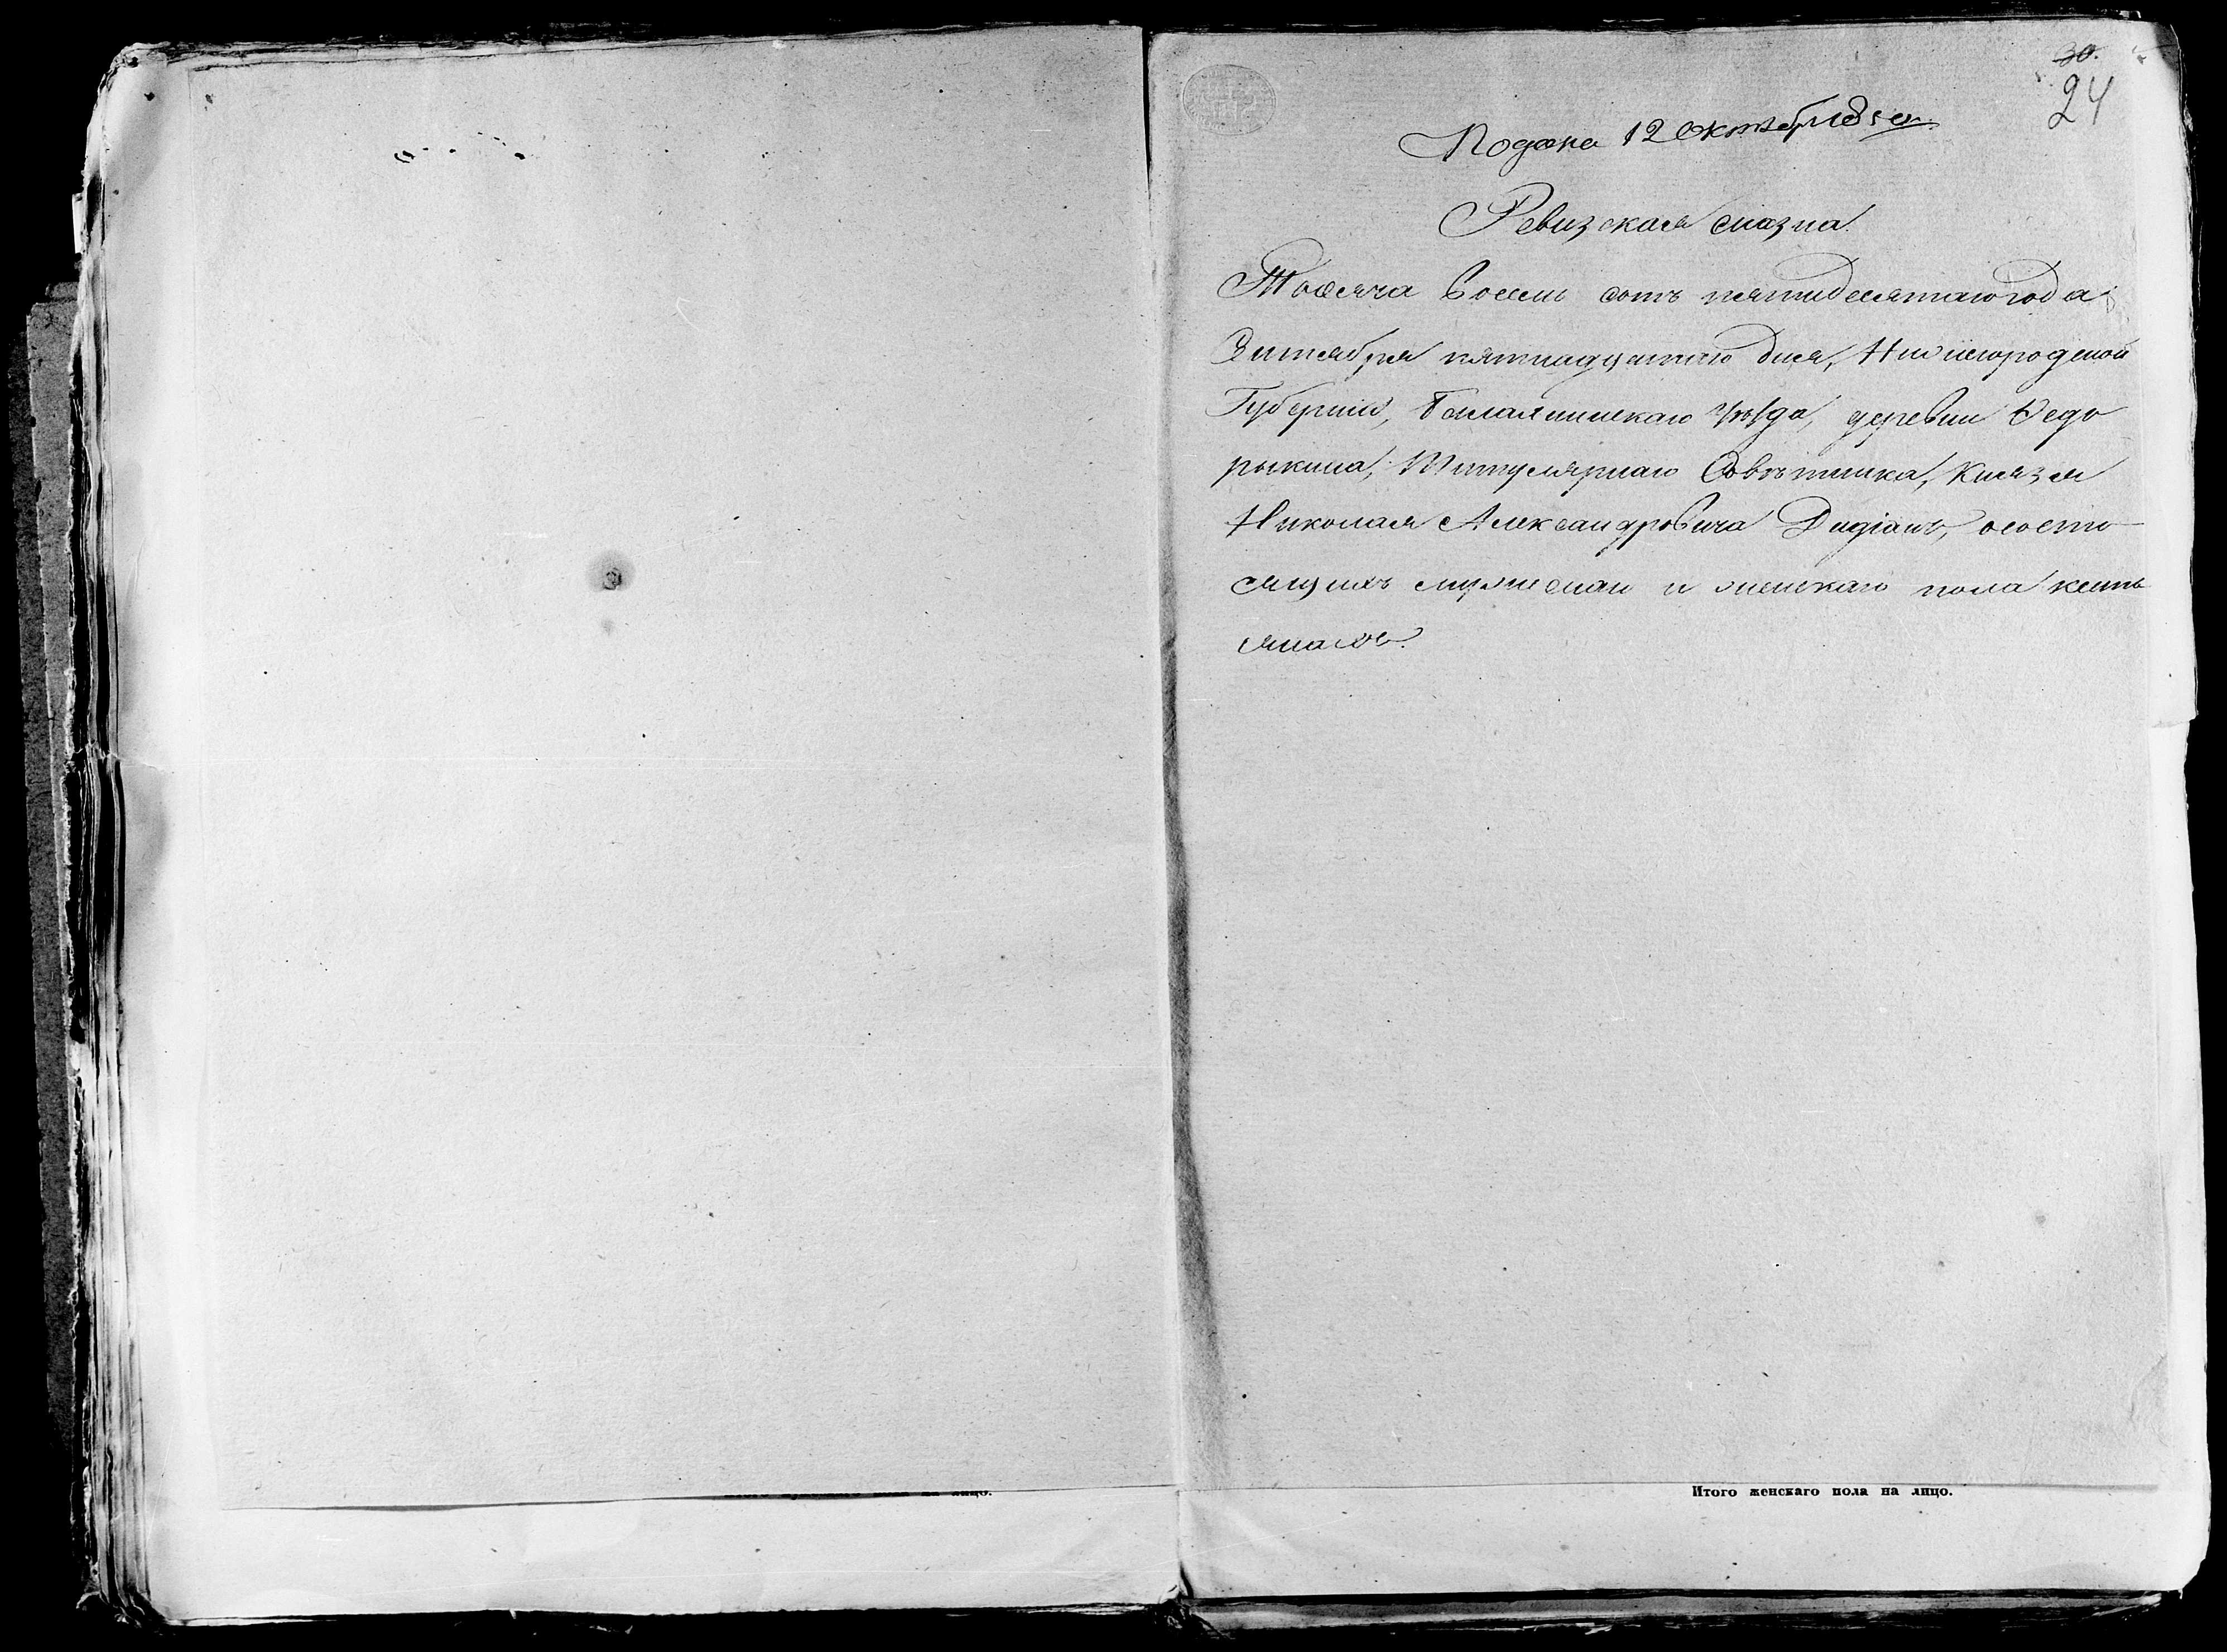 30.
24
Подана 12 Октября
Ревизская сказка.
Тысяча восемь сотъ пятидесятаго года
Октября пятнадцатаго дня, Нижегородской
Губерніи, Балахнинскаго Уѣзда, деревни Ѳедо
рыкина, Титулярнаго Совѣтника, Князя
Николая Александровича Дидіанъ, о состо
ящихъ мужскаго и женскаго пола кресть
янахъ.
Итого женскаго пола на лицо.